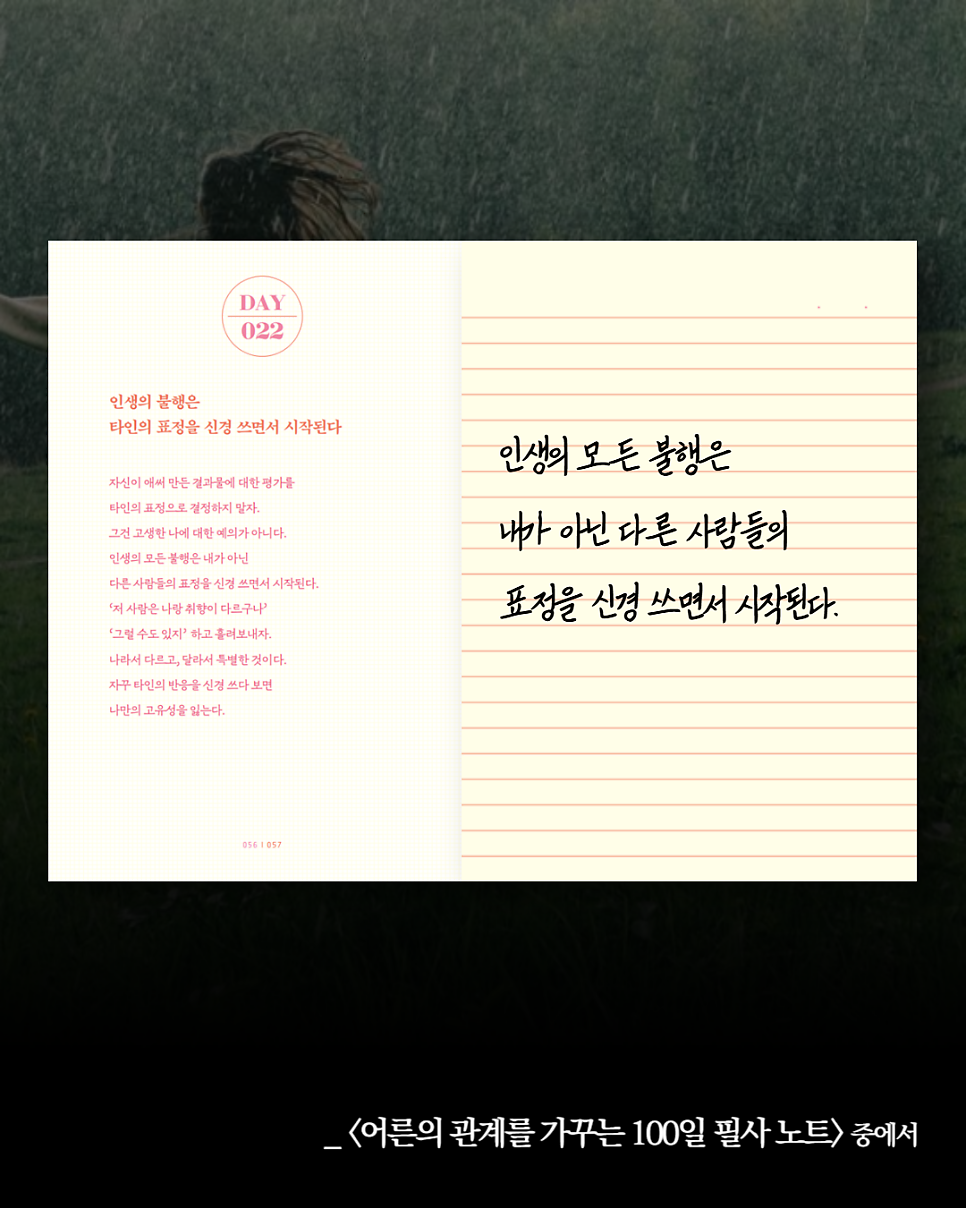 DAY
022
인생의 불행은
타인의 표정을 신경 쓰면서 시작된다
자신이 애써 만든 결과물에 대한 평가를
타인의 표정으로 결정하지 말자.
그건 고생한 나에 대한 예의가 아니다.
인생의 모든 불행은 내가 아닌
다른 사람들의 표정을 신경 쓰면서 시작된다.
‘저 사람은 나랑 취향이 다르구나’
‘그럴 수도 있지’ 하고 흘려보내자.
나라서 다르고, 달라서 특별한 것이다.
자꾸 타인의 반응을 신경 쓰다 보면
나만의 고유성을 잃는다.
056 | 057
인생의 모든 불행은
내가 아닌 다른 사람들의
표정을 신경 쓰면서 시작된다.
_ <어른의 관계를 가꾸는 100일 필사 노트> 중에서